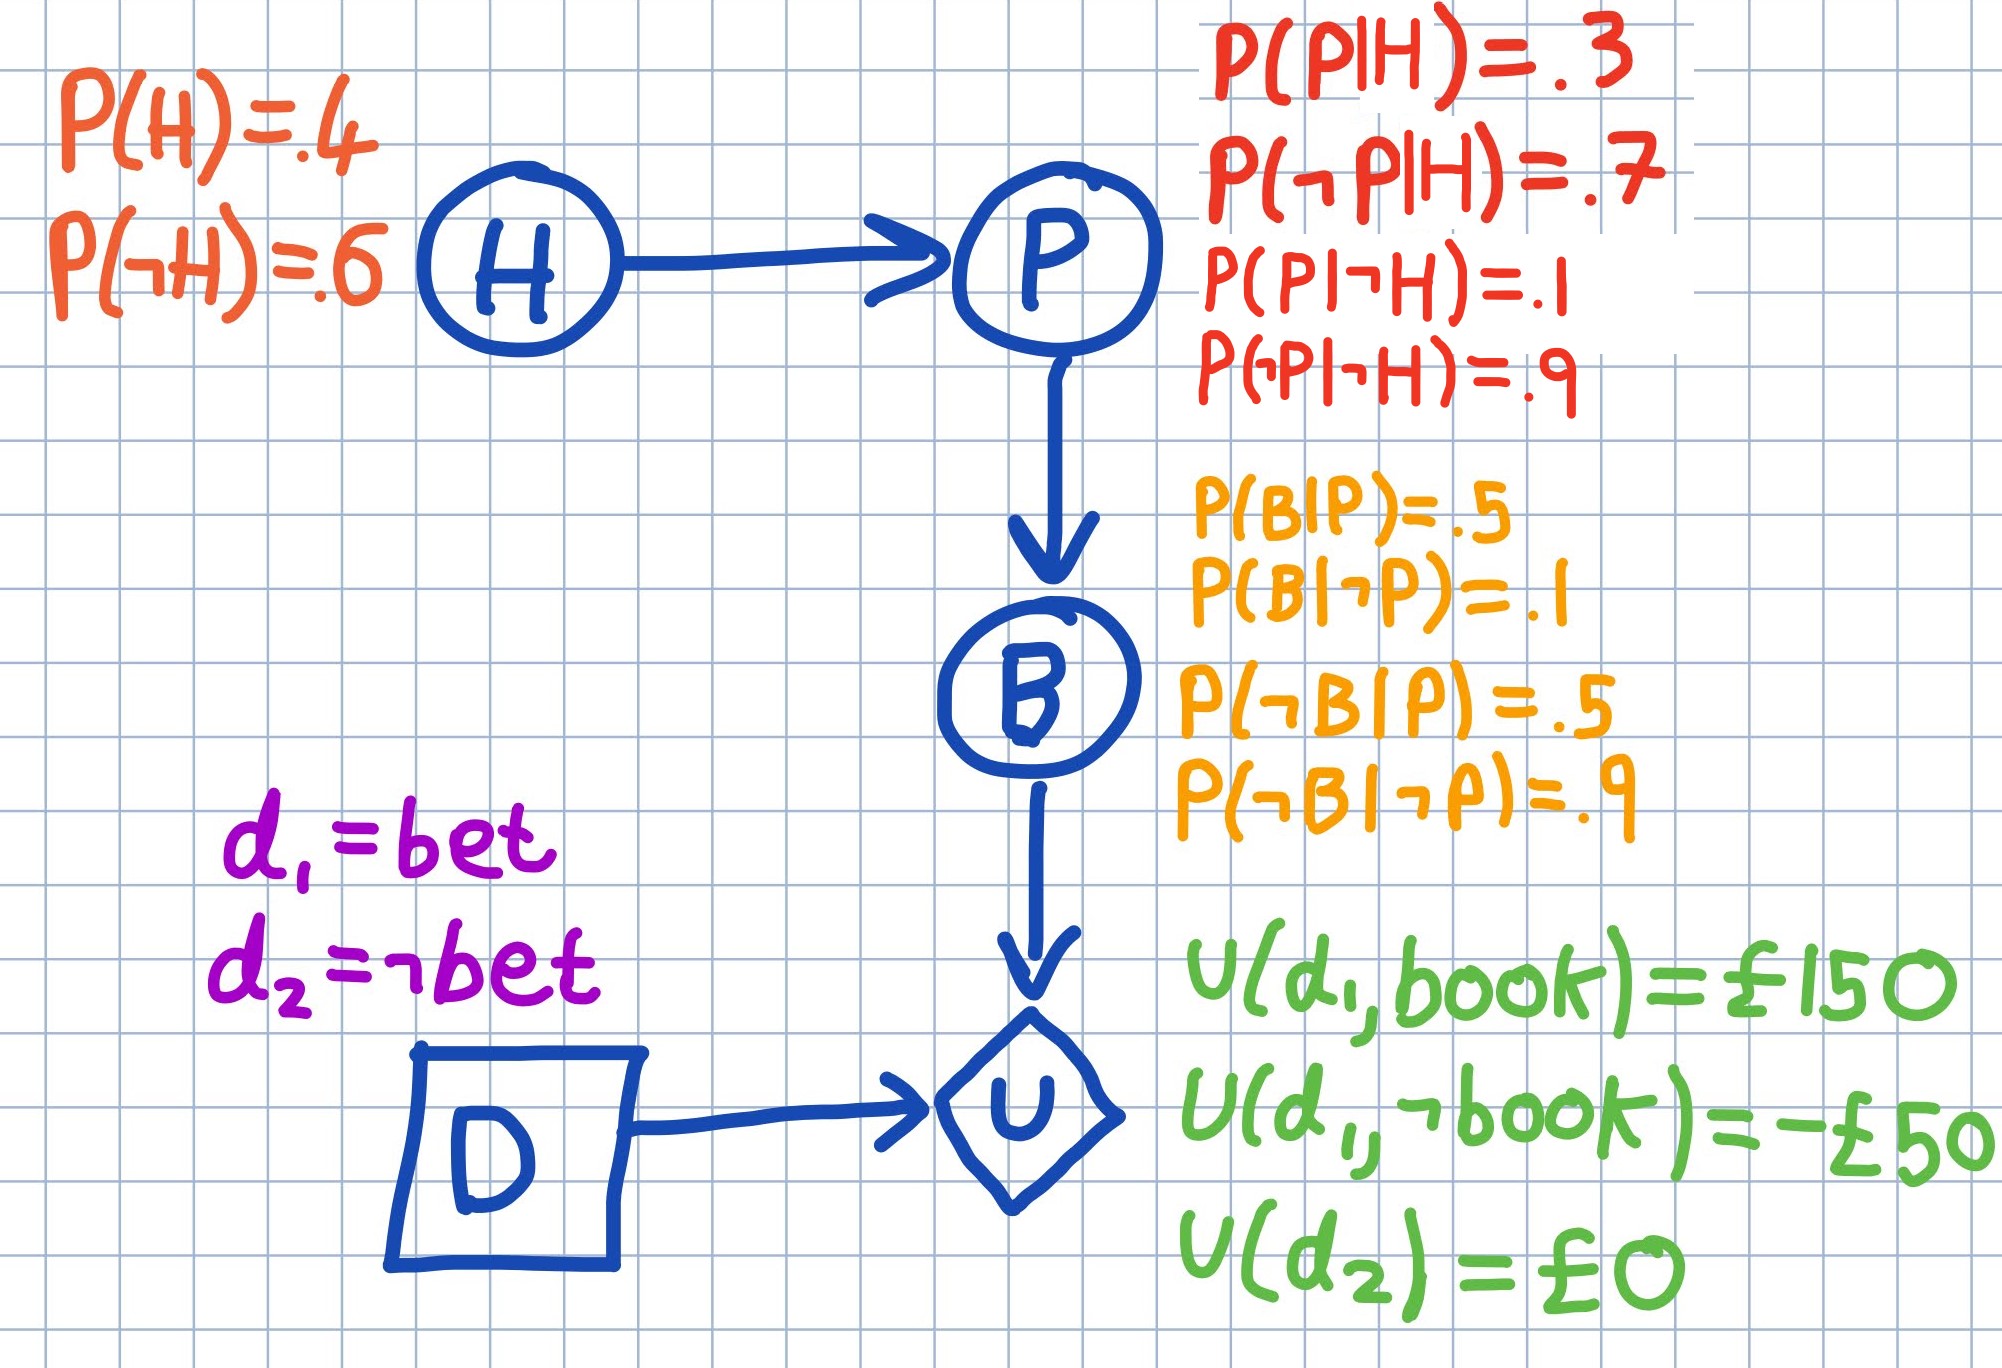 P(H)=.4
P(¬H)=.6
H
P
P(P|H)=.3
P(¬P|H)=.7
P(P|¬H)=.1
P(¬P|¬H)=.9
P(B|P)=.5
P(B|¬P)=.1
P(¬B|P)=.5
P(¬B|¬P)=.9
B
d₁=bet
d₂=¬bet
D
U
U(d₁,book)=£150
U(d₁,¬book)=-£50
U(d₂)=£0